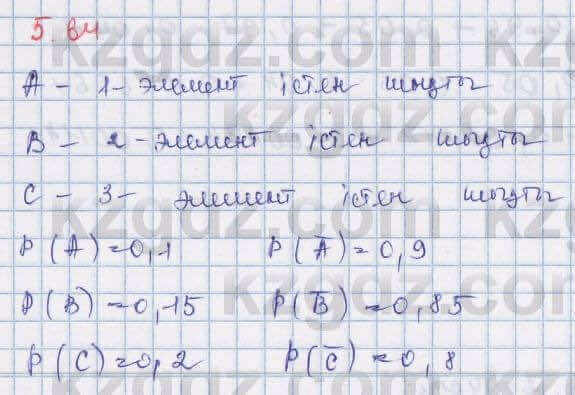 5.64
A - 1 - элемент істен шықты
B - 2 - элемент істен шықты
C - 3 - элемент істен шықты
P(A)=0,1 P(A̅)=0,9
P(B)=0,15 P(B̅)=0,85
P(C)=0,2 P(C̅)=0,8
kzgdz.com